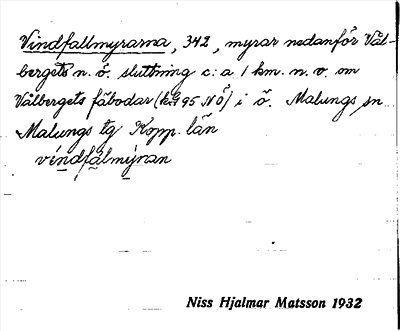 Vindfallmyrarna, 342, myrar nedanför Vål-
bergets n. ö. sluttning c:a 1 km. n. v. om
Vålbergets fäbodar (kg 95 NÖ) i ö. Malungs sn
Malungs tg Kopp. län
vindfalmýran
Niss Hjalmar Matsson 1932